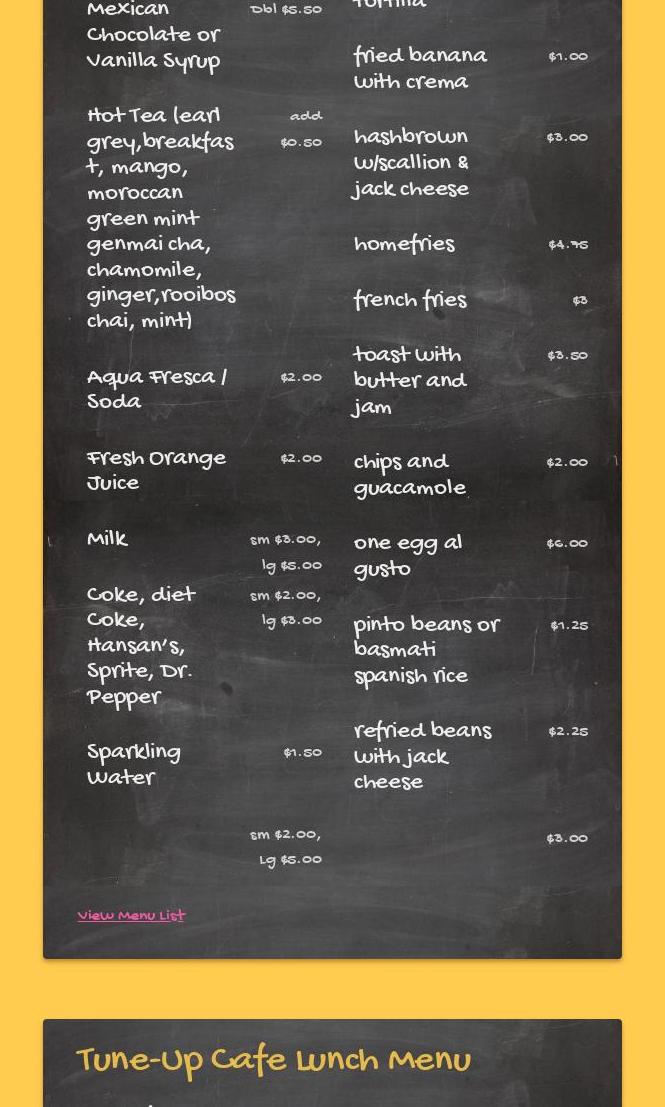 Mexican Dbl $5.50
Chocolate or
Vanilla Syrup
Hot Tea (earl add
grey,breakfas $0.50
t, mango,
moroccan
green mint
genmai cha,
chamomile,
ginger,rooibos
chai, mint)
Aqua Fresca / $2.00
Soda
Fresh Orange $2.00
Juice
Milk sm $3.00,
lg $5.00
Coke, diet sm $2.00,
Coke, lg $3.00
Hansan's,
Sprite, Dr.
Pepper
Sparkling $1.50
Water
sm $2.00,
Lg $5.00
tortilla
fried banana $1.00
with crema
hashbrown $3.00
w/scallion &
jack cheese
homefries $4.75
french fries $3
toast with $3.50
butter and
jam
chips and $2.00
guacamole
one egg al $6.00
gusto
pinto beans or $1.25
basmati
spanish rice
refried beans $2.25
with jack
cheese
$3.00
View Menu List
Tune-Up Cafe Lunch Menu